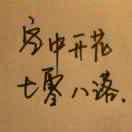 房中开花
七零八落.